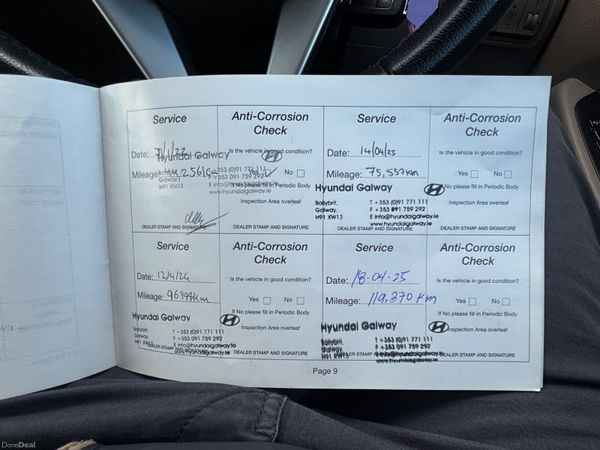 Service
Anti-Corrosion
Check
Is the vehicle in good condition?
Date:
Hyundai Galway
Mileage:
Yes No
If No please fill in Periodic Body
Inspection Area overleaf
Galway.
H91 XW13
T +353 (0)91 771 111
F +353 091 759 292
E info@hyundaigalway.ie
www.hyundaigalway.ie
DEALER STAMP AND SIGNATURE
DEALER STAMP AND SIGNATURE
Service
Anti-Corrosion
Check
Date: 14/04/23
Is the vehicle in good condition?
Mileage: 75,557km
Yes No
No please fill in Periodic Body
Inspection Area overleaf
Hyundai Galway
Ballybrit,
Galway.
H91 XW13
T +353 (0)91 771 111
F +353 091 759 292
E info@hyundaigalway.ie
www.hyundaigalway.ie
DEALER STAMP AND SIGNATURE
DEALER STAMP AND SIGNATURE
Service
Anti-Corrosion
Check
Date: 12/4/24
Is the vehicle in good condition?
Mileage:
Yes No
If No please fill in Periodic Body
Inspection Area overleaf
Hyundai Galway
Ballybrit,
Galway.
H91 XW13
T +353 (0)91 771 111
F +353 091 759 292
E info@hyundaigalway.ie
www.hyundaigalway.ie
DEALER STAMP AND SIGNATURE
Service
Anti-Corrosion
Check
Date: 18-04-25
Is the vehicle in good condition?
Mileage: 119,370 km
Yes No
If No please fill in Periodic Body
Inspection Area overleaf
Hyundai Galway
Ballybrit,
Galway.
H91 XW13
T +353 (0)91 771 111
F +353 091 759 292
E info@hyundaigalway.ie
www.hyundaigalway.ie
DEALER STAMP AND SIGNATURE
Page 9
DoneDeal